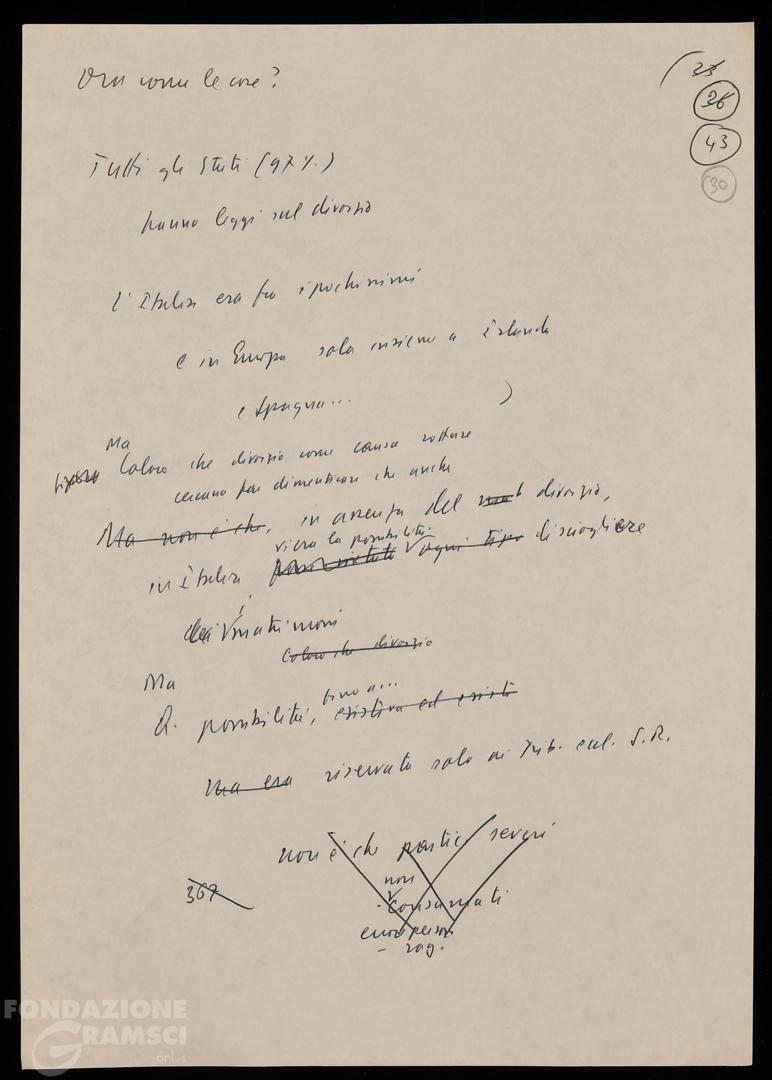 Ora come le cose?
23
26
43
30
Tutti gli Stati (97%)
hanno leggi sul divorzio
L'Italia era fra i pochissimi
e in Europa sola insieme a Irlanda
e Spagna... )
Ma
Coloro che divorzio come causa rotture
cercano far dimenticare che anche
Ma non è che, in assenza del divorzio,
v'era la possibilità
in Italia ogni tipo di sciogliere
dei matrimoni
Coloro che divorzio
Ma
Q. possibilità, fino a... esisteva ed esiste
ma era riservata solo ai Trib. eccl. S.R.
non è che severi
non
consumati
rag.
367
FONDAZIONE
GRAMSCI
onlus